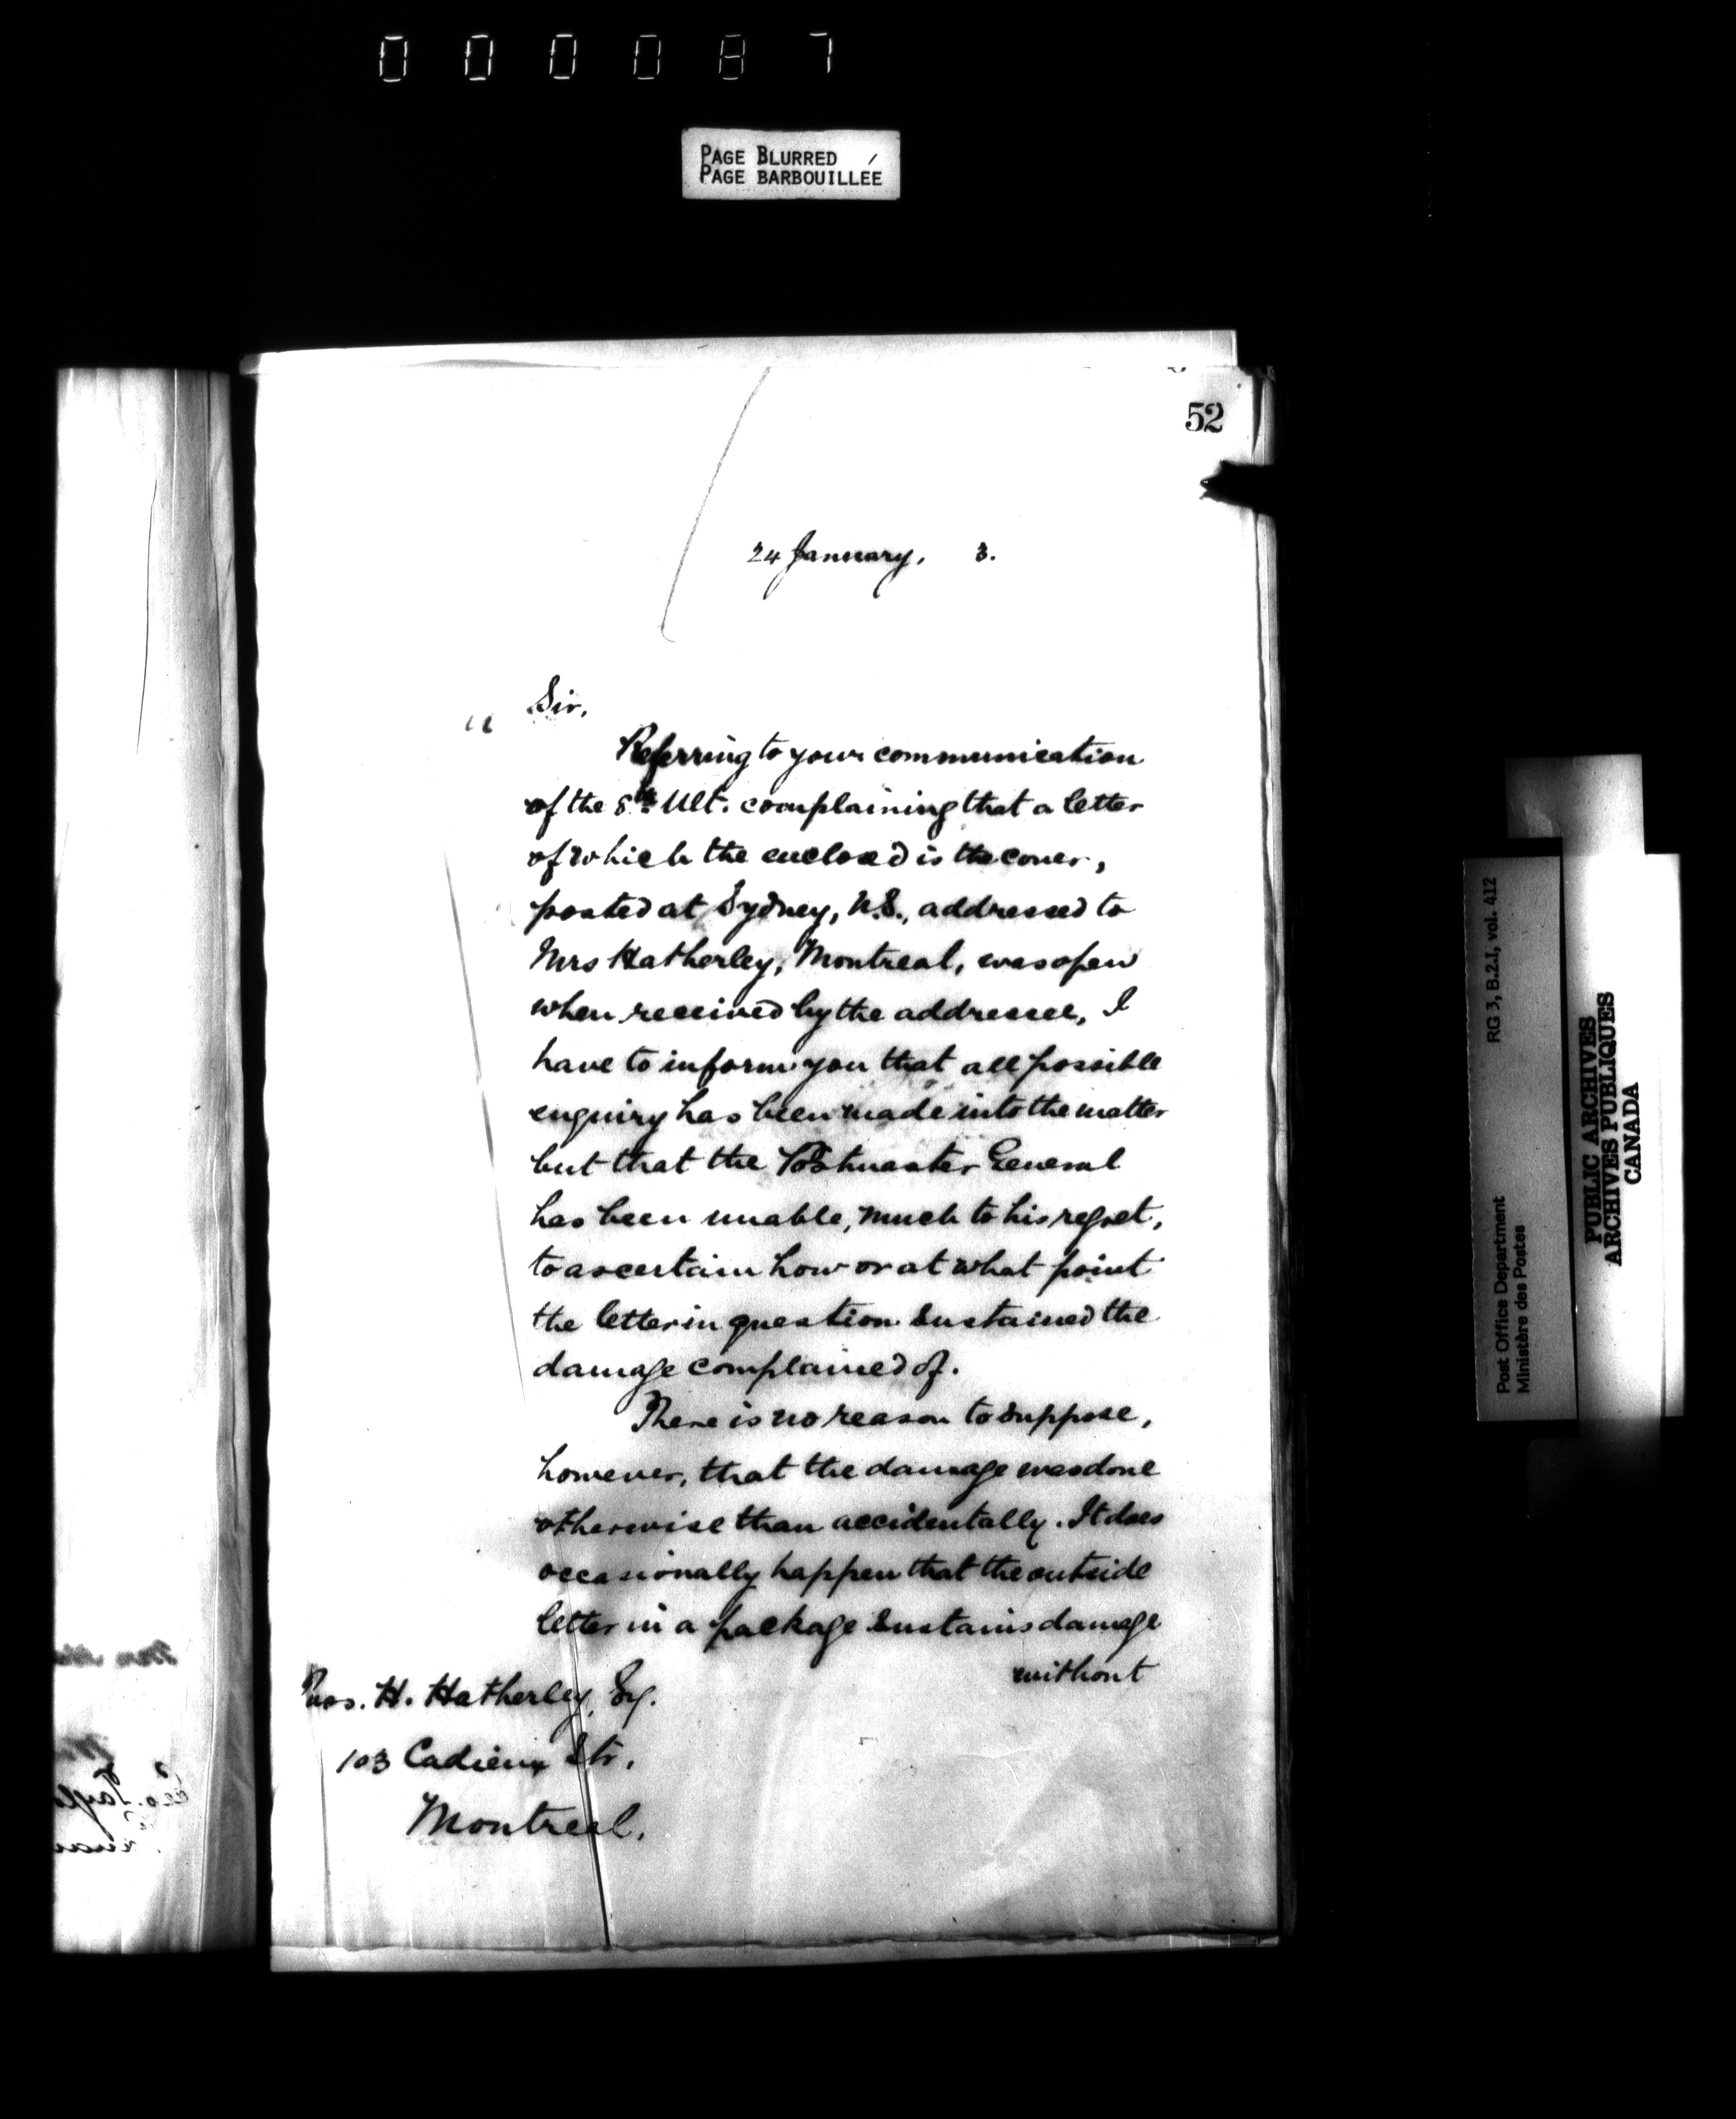 000087
PAGE BLURRED
PAGE BARBOUILLÉE
52
24 January, 3.
Sir,
Referring to your communication
of the 8th Ult. complaining that a letter
of which the enclosed is the cover,
posted at Sydney, N.S., addressed to
Mrs Hatherley, Montreal, was open
when received by the addressee, I
have to inform you that all possible
enquiry has been made into the matter
but that the Postmaster General
has been unable, much to his regret,
to ascertain how or at what point
the letter in question sustained the
damage complained of.
There is no reason to suppose,
however, that the damage was done
otherwise than accidentally. It does
occasionally happen that the outside
letter in a package sustains damage
without
H. Hatherley, Esq.
103 Cadieux Str.
Montreal.
RG 3, B.2.1, vol. 412
Post Office Department
Ministère des Postes
PUBLIC ARCHIVES
ARCHIVES PUBLIQUES
CANADA